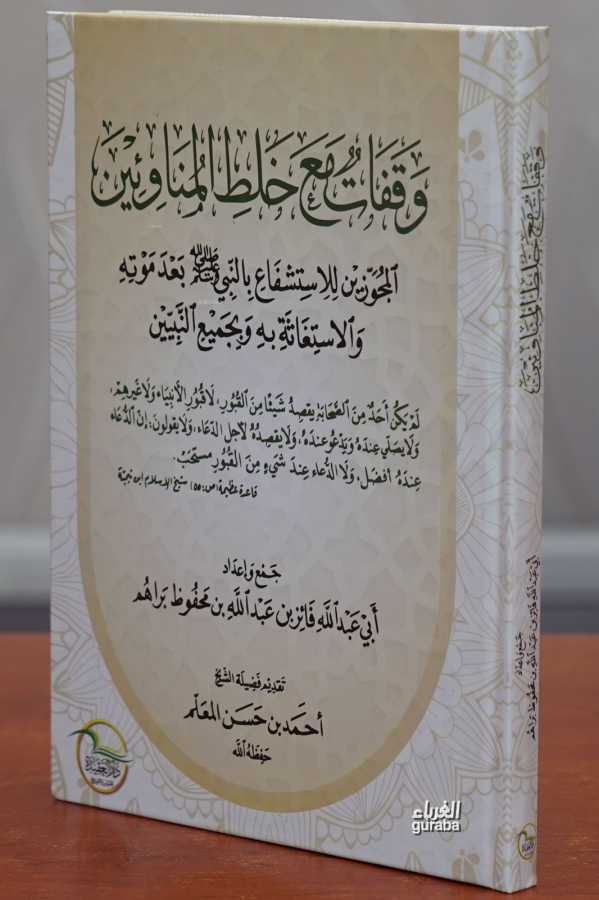 وَقَفَاتٌ مَعَ خَلْطِ المُنَاوِئِيْنَ
المُجَوِّزِيْنَ لِلاِسْتِشْفَاعِ بِالنَّبِيِّ ﷺ بَعْدَ مَوْتِهِ
وَالاسْتِغَاثَةِ بِهِ وَبِجَمِيْعِ النَّبِيِّيْنَ
لَمْ يَكُنْ أَحَدٌ مِنَ الصَّحَابَةِ يَقْصِدُ شَيْئًا مِنَ القُبُورِ، لَا قُبُورِ الأَنْبِيَاءِ وَلَا غَيْرِهِمْ،
وَلَا يُصَلِّي عِنْدَهُ وَيَدْعُو عِنْدَهُ، وَلَا يَقْصِدُهُ لِأَجْلِ الدُّعَاءِ، وَلَا يَقُولُونَ: إِنَّ الدُّعَاءَ
عِنْدَهُ أَفْضَلُ، وَلَا الدُّعَاءُ عِنْدَ شَيْءٍ مِنَ القُبُورِ مُسْتَحَبٌّ.
قاعدة عظيمة (ص: ٥٥) شيخ الإسلام ابن تيمية
جَمْع وَإعْدَاد
أَبِي عَبْدِ اللَّهِ فَائِزِ بْنِ عَبْدِ اللَّهِ بْنِ مَحْفُوظ بَرَاهُم
تَقْدِيم فَضِيلَة الشَّيْخ
أَحْمَد بن حَسَن المُعَلِّم
حَفِظَهُ اللَّه
دار العقيدة
الغرباء
guraba
وَقَفَاتٌ مَعَ خَلْطِ المُنَاوِئِيْنَ
جَمْع وَإعْدَاد
أَبِي عَبْدِ اللَّهِ فَائِزِ بْنِ عَبْدِ اللَّهِ بْنِ مَحْفُوظ بَرَاهُم